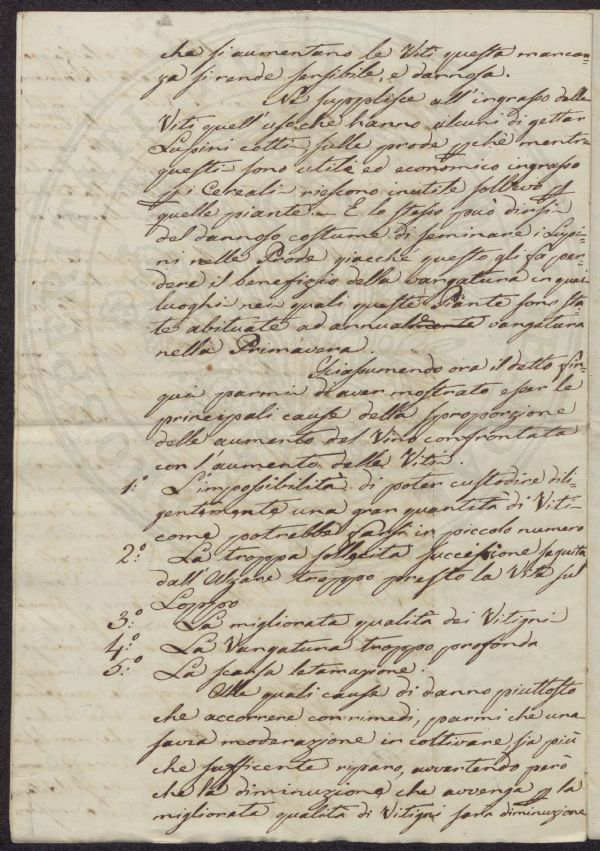 che si aumentano le Viti questa mancan=
za si rende sensibile, e dannosa.
Nè supplisce all'ingrasso delle
Viti quell'uso che hanno alcuni di gettar
Lupini cotti sulle prode pchè mentre
questi sono utile ed economico ingrasso
p i Cereali riescono inutile sollievo p
quelle piante. E lo stesso può dirsi
del dannoso costume di seminare i Lupi=
ni nelle Prode giacchè questo gli fa per=
dere il beneficio della vangatura in quei
luoghi nei quali queste Piante sono sta=
te abituate ad annual vangatura
nella Primavera.
Riassumendo ora il detto fin
qui parmi d'aver mostrato esser le
principali cause della sproporzione
dello aumento del Vino confrontata
con l'aumento delle Viti.
1.° L'impossibilità di poter custodire dili=
gentemente una gran quantità di Viti
come potrebbe farsi in piccolo numero
2.° La troppa sollecita successione seguita
dall'Alzare troppo presto la Vite sul
Loppo
3.° La migliorata qualità dei Vitigni
4.° La Vangatura troppo profonda
5.° La scarsa letamazione.
Alle quali cause di danno piuttosto
che accorrere con rimedi, parmi che una
savia moderazione in coltivare sia più
che sufficente riparo, avvertendo però
che la diminuzione che avvenga p la
migliorata qualità di Vitigni sarà diminuzione